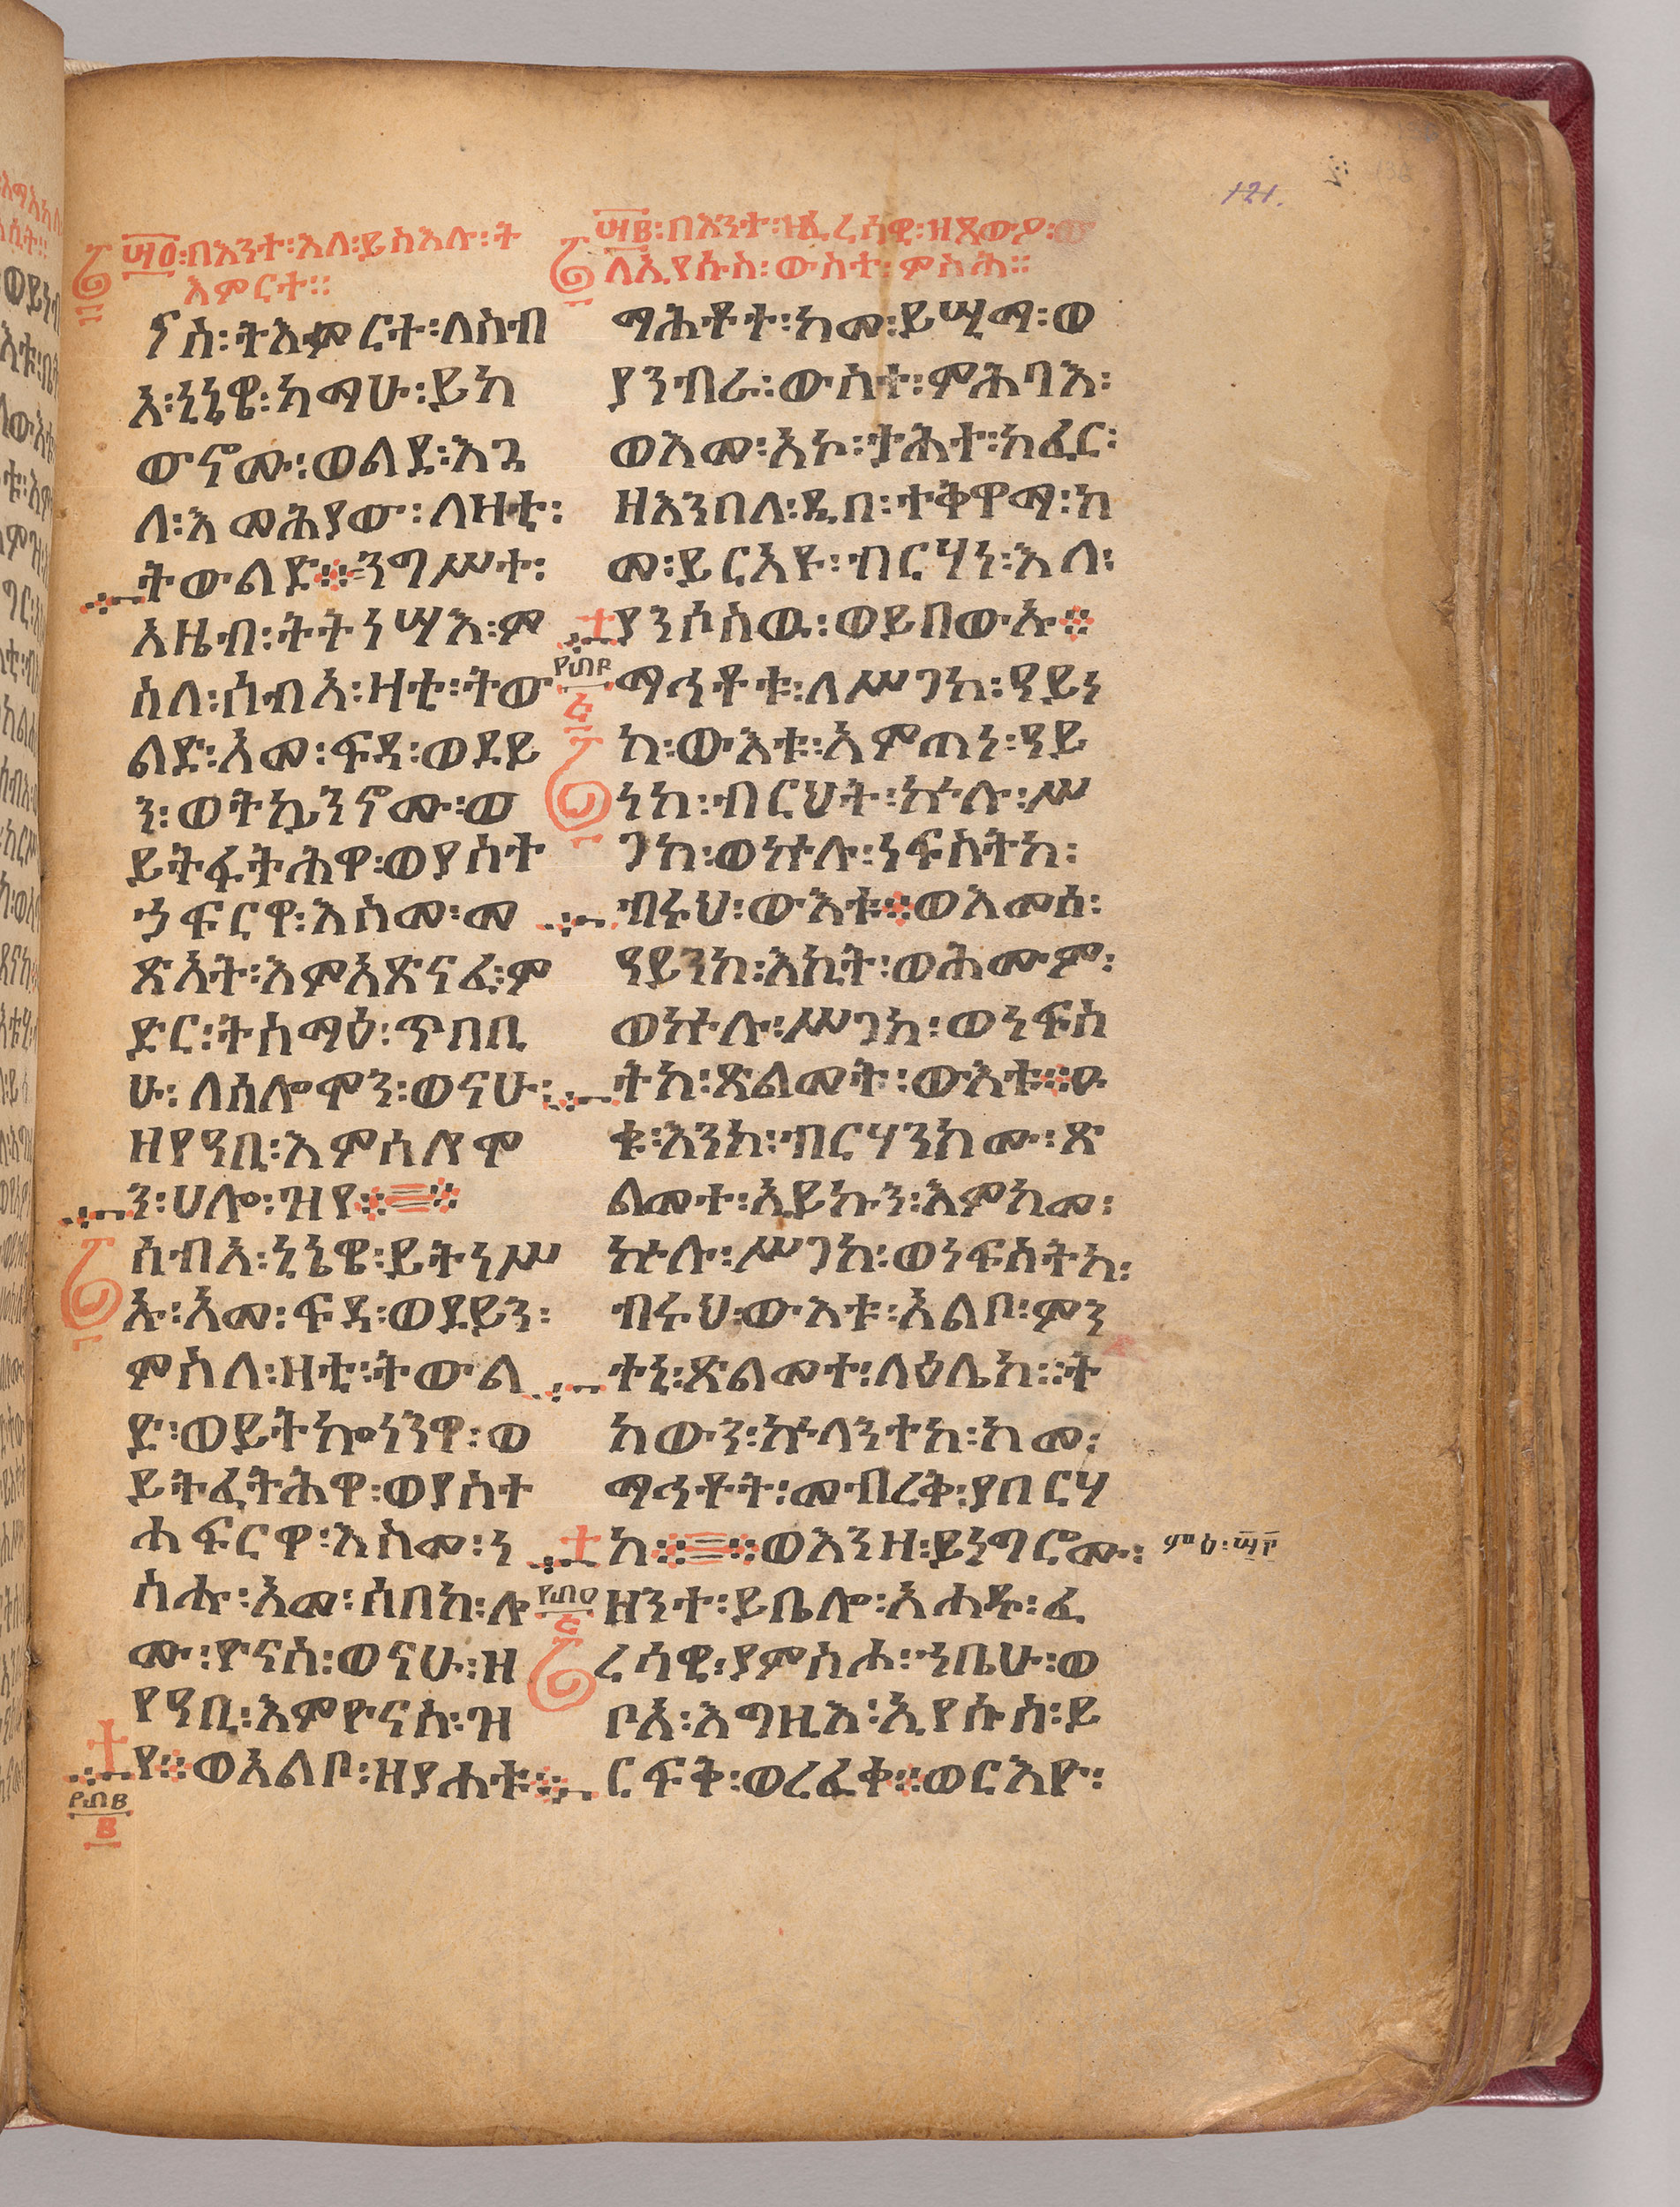 ፵፬፡በእንተ፡እለ፡ይስእሉ፡ት
እምርት፡፡
ናስ፡ትእምርት፡ለሰብ
አ፡ነነዌ፡ከማሁ፡ይከ
ውኖሙ፡ወልደ፡እጓ
ለ፡እመሕያው፡ለዛቲ፡
ትውልድ፨ንግሥተ፡
አዜብ፡ትትነሣእ፡ም
ስለ፡ሰብአ፡ዛቲ፡ትው
ልድ፡አመ፡ፍዳ፡ወደይ
ን፡ወትኴንኖሙ፡ወ
ይትፋትሕዋ፡ወያስተ
ኃፍርዋ፡እስመ፡መ
ጽአት፡እምአጽናፈ፡ም
ድር፡ትስማዕ፡ጥበቢ
ሁ፡ለሰሎሞን፡ወናሁ፡
ዘየዓቢ፡እምሰሎሞ
ን፡ሀሎ፡ዝየ፨
ሰብአ፡ነነዌ፡ይትነሥ
ኡ፡አመ፡ፍዳ፡ወደይን፡
ምስለ፡ዛቲ፡ትውል
ድ፡ወይትኰነንዋ፡ወ
ይትፈትሕዋ፡ወያስተ
ሐፍርዋ፡እስመ፡ነ
ስሑ፡አመ፡ሰበከ፡ሎ
ሙ፡ዮናስ፡ወናሁ፡ዘ
የዓቢ፡እምዮናስ፡ዝ
የ፨ወአልቦ፡ዘያሐቱ፨
121.
ለኢየሱስ፡ውስተ፡ምሳሕ፡፡
ማሕቶተ፡ከመ፡ይሢማ፡ወ
ያንብራ፡ውስተ፡ምሕባእ፡
ወእመ፡አኮ፡ታሕተ፡ከፈር፡
ዘእንበለ፡ዲበ፡ተቅዋማ፡ከ
መ፡ይርአዩ፡ብርሃነ፡እለ፡
ያንሶስዉ፡ወይበውኡ፨
ማኅቶቱ፡ለሥጋከ፡ዓይነ
ከ፡ውእቱ፡አምጠነ፡ዓይ
ነከ፡ብርህት፡ኵሉ፡ሥ
ጋከ፡ወኵሉ፡ነፍስትከ፡
ብሩህ፡ውእቱ፨ወእመሰ፡
ዓይንከ፡እኪት፡ወሕሙም፡
ወኵሉ፡ሥጋከ፡ወነፍስ
ትከ፡ጽልመት፡ውእቱ፨ዑ
ቁ፡እንከ፡ብርሃንከሙ፡ጽ
ልመተ፡ኢይኩን፡እምከመ፡
ኵሉ፡ሥጋከ፡ወነፍስትከ፡
ብሩህ፡ውእቱ፡አልቦ፡ምን
ተኒ፡ጽልመተ፡ላዕሌከ፡፡ት
ከውን፡ኵለንተከ፡ከመ፡
ማኅቶት፡መብረቅ፡ያበርሃ
ከ፨ወእንዘ፡ይነግሮሙ፡
ዘንተ፡ይቤሎ፡አሐዱ፡ፈ
ሪሳዊ፡ያምስሐ፡ኀቤሁ፡ወ
ቦአ፡እግዚእ፡ኢየሱስ፡ይ
ርፍቅ፡ወረፈቀ፨ወርእዮ፡